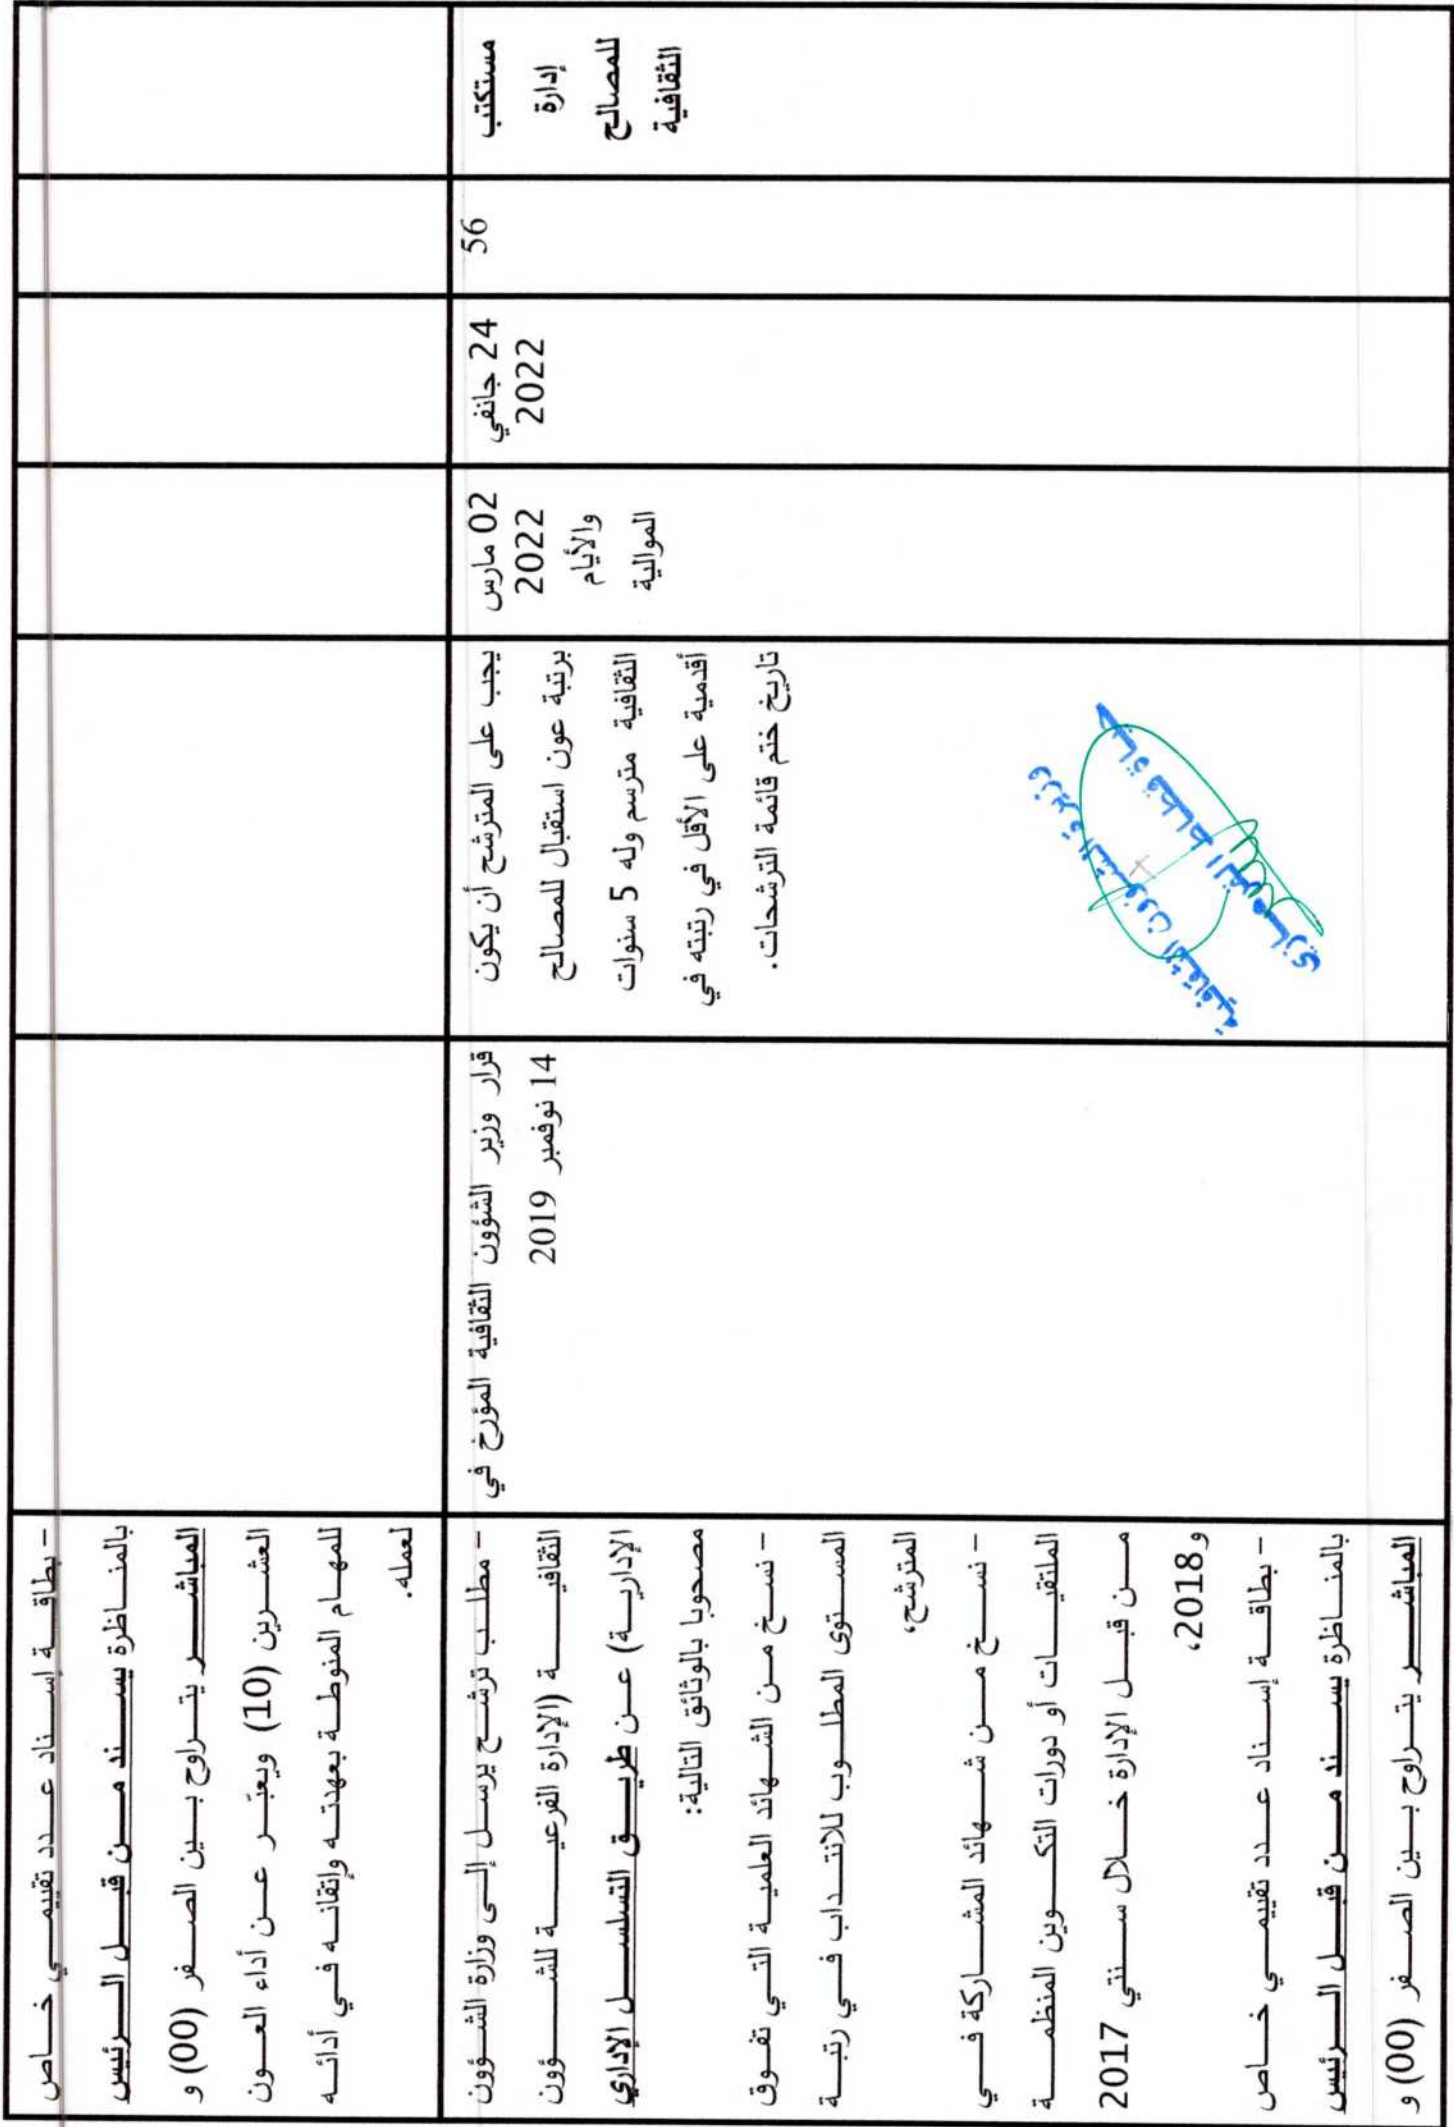 - بطاقة إسناد عدد تقييمي خاص
بالمناظرة يسند من قبل الرئيس
المباشر يتراوح بين الصفر (00) و
العشرين (10) ويعبّر عن أداء العون
للمهام المنوطة بعهدته وإتقانه في أدائه
لعمله.
مستكتب
إدارة
للمصالح
الثقافية
56
24 جانفي
2022
02 مارس
2022
والأيام
الموالية
يجب على المترشح أن يكون
برتبة عون استقبال للمصالح
الثقافية مترسم وله 5 سنوات
أقدمية على الأقل في رتبته في
تاريخ ختم قائمة الترشحات.
وزيرة الشؤون الثقافية
حياة قطاط القرمازي
قرار وزير الشؤون الثقافية المؤرخ في
14 نوفمبر 2019
- مطلب ترشح يرسل إلى وزارة الشؤون
الثقافية (الإدارة الفرعية للشؤون
الإدارية) عن طريق التسلسل الإداري
مصحوبا بالوثائق التالية:
- نسخ من الشهائد العلمية التي تفوق
المستوى المطلوب للانتداب في رتبة
المترشح،
- نسخ من شهائد المشاركة في
الملتقيات أو دورات التكوين المنظمة
من قبل الإدارة خلال سنتي 2017
و2018،
- بطاقة إسناد عدد تقييمي خاص
بالمناظرة يسند من قبل الرئيس
المباشر يتراوح بين الصفر (00) و